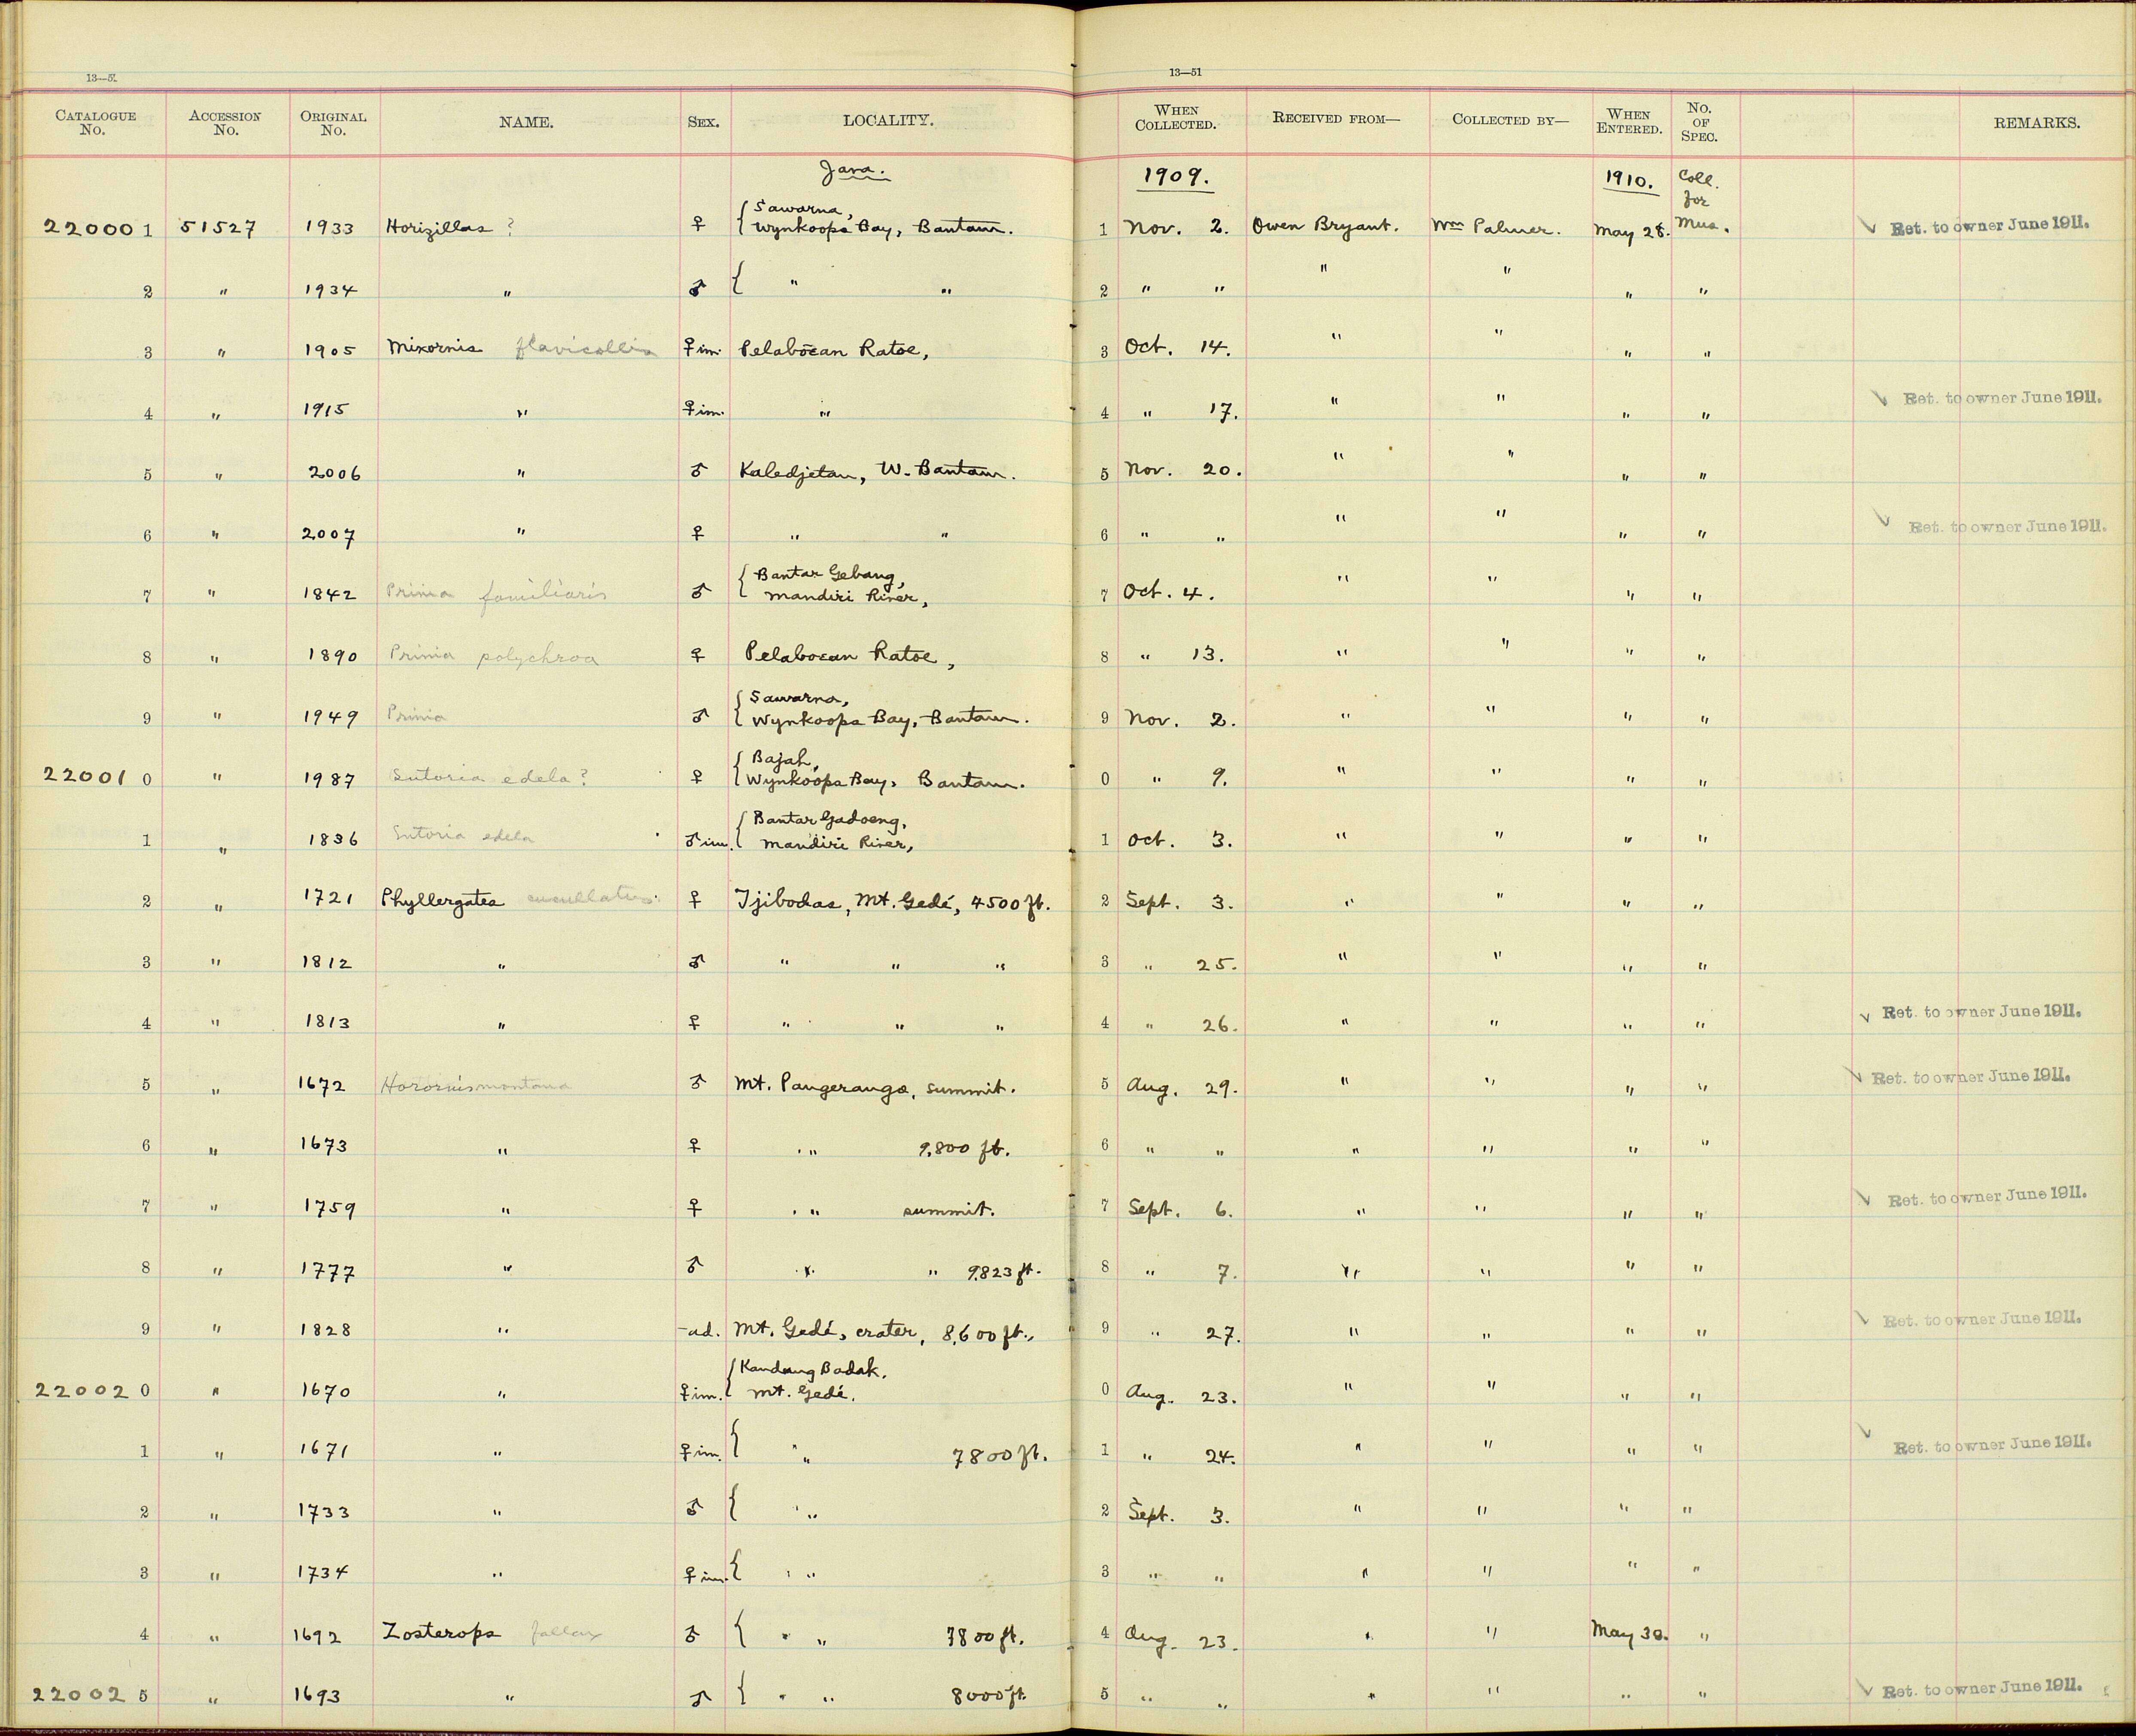 13—51 13—51
CATALOGUE No. ACCESSION No. ORIGINAL No. NAME. SEX. LOCALITY. WHEN COLLECTED. RECEIVED FROM— COLLECTED BY— WHEN ENTERED. No. OF SPEC. REMARKS.
Java. 1909. 1910. Coll. for Mus.
220001 51527 1933 Horizillas ? ♀ { Sawarna, Wynkoops Bay, Bantam. 1 Nov. 2. Owen Bryant. Wm Palmer. May 28. Ret. to owner June 1911.
2 " 1934 " ♂ { " " 2 " " " " " "
3 " 1905 Mixornis flavicollis ♀ im. Pelaboean Ratoe, 3 Oct. 14. " " " "
4 " 1915 " ♀ im. " 4 " 17. " " " " Ret. to owner June 1911.
5 " 2006 " ♂ Kaledjetan, W. Bantam. 5 Nov. 20. " " " "
6 " 2007 " ♀ " " 6 " " " " " " Ret. to owner June 1911.
7 " 1842 Prinia familiaris ♂ { Bantar Gebang, Mandiri River, 7 Oct. 4. " " " "
8 " 1890 Prinia polychroa ♀ Pelaboean Ratoe, 8 " 13. " " " "
9 " 1949 Prinia ♂ { Sawarna, Wynkoops Bay, Bantam. 9 Nov. 2. " " " "
220010 " 1987 Sutoria edela ? ♀ { Bajah, Wynkoops Bay, Bantam. 0 " 9. " " " "
1 " 1836 Sutoria edela ♂ im. { Bantar Gadoeng, Mandiri River, 1 Oct. 3. " " " "
2 " 1721 Phyllergates cucullatus. ♀ Tjibodas, Mt. Gedé, 4500 ft. 2 Sept. 3. " " " "
3 " 1812 " ♂ " " " 3 " 25. " " " "
4 " 1813 " ♀ " " " 4 " 26. " " " " Ret. to owner June 1911.
5 " 1672 Horornis montana ♂ Mt. Pangerango, summit. 5 Aug. 29. " " " " Ret. to owner June 1911.
6 " 1673 " ♀ " 9,800 ft. 6 " " " " " "
7 " 1759 " ♀ " summit. 7 Sept. 6. " " " " Ret. to owner June 1911.
8 " 1777 " ♂ " " 9823 ft. 8 " 7. " " " "
9 " 1828 " - ad. Mt. Gedé, crater, 8,600 ft., 9 " 27. " " " " Ret. to owner June 1911.
220020 " 1670 " ♀ im. { Kandang Badak, Mt. Gedé. 0 Aug. 23. " " " "
1 " 1671 " ♀ im. { " " 7800 ft. 1 " 24. " " " " Ret. to owner June 1911.
2 " 1733 " ♂ { " " 2 Sept. 3. " " " "
3 " 1734 " ♀ im. { " " 3 " " " " " "
4 " 1692 Zosterops fallax ♂ { " " 7800 ft. 4 Aug. 23. " " May 30. "
220025 " 1693 " ♂ { " " 8000 ft. 5 " " " " " " Ret. to owner June 1911.